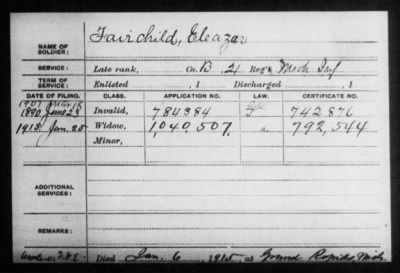 NAME OF SOLDIER: Fairchild, Eleazar
SERVICE: Late rank, Co. B, 21 Reg't Mich Inf
TERM OF SERVICE: Enlisted , 1 Discharged , 1
DATE OF FILING. CLASS. APPLICATION NO. LAW. CERTIFICATE NO.
1907 Mar 15
1890 June 23 Invalid, 784384 J 742876
1915 Jan. 25 Widow, 1040,507 792,544
Minor,
ADDITIONAL SERVICES:
REMARKS:
Died Jan. 6, 1915, at Grand Rapids, Mich